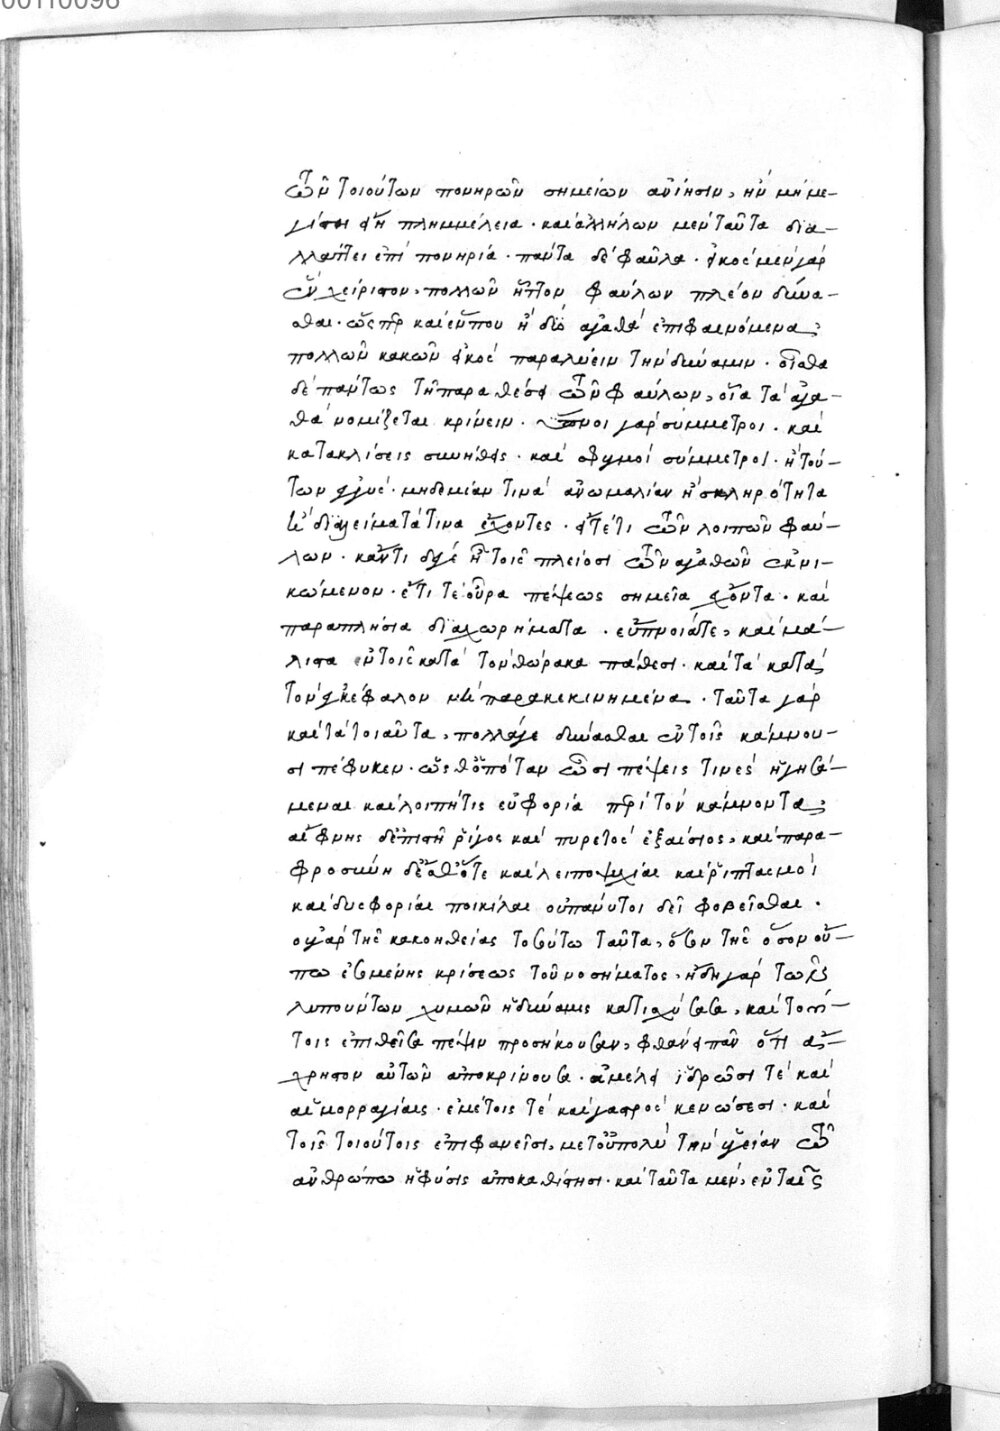 00110096
τῶν τοιούτων πονηρῶν σημείων ἀνίησιν, ἢν μὴ με-
γίστη ᾖ πλημμέλεια. καὶ ἀλλήλων μὲν ταῦτα δια-
λλάττει ἐπὶ πονηρία. πάντα δὲ φαῦλα. εἰκὸς μὲν γὰρ
ἓν χείριστον, πολλῶν ἧττον φαύλων πλέον δύνα-
σθαι. ὥσπερ καὶ εἴ που ἢ δύο ἀγαθὰ ἐπιφαινόμενα,
πολλῶν κακῶν εἰκὸς παραλύειν τὴν δύναμιν.
δὲ πάντως τῇ παραθέσει τῶν φαύλων, οἷα τὰ ἀγα-
θὰ νομίζεται κρίνειν. ὕπνοι γὰρ σύμμετροι. καὶ
κατακλίσεις συνήθεις. καὶ σφυγμοὶ σύμμετροι. ἢ τού-
των ἐγγύς. μηδεμίαν τινὰ ἀνωμαλίαν ἢ σκληρότητα
ἢ διαλείματά τινα ἔχοντες. εἴτε τι τῶν λοιπῶν φαύ-
λων. κἄν τι ᾖ τοῖς πλείοσι τῶν ἀγαθῶν ἐκνι-
κώμενον. ἔτι τε οὖρα πέψεως σημεῖα ἔχοντα. καὶ
παραπλήσια διαχωρήματα. εὔπνοιά τε, καὶ μά-
λιστα ἐν τοῖς κατὰ τὸν θώρακα πάθεσι. καὶ τὰ κατὰ
τὸν ἐγκέφαλον μὴ παρακεκινημένα. ταῦτα γὰρ
καὶ τὰ τοιαῦτα, πολλάκις δύνασθαι ἐν τοῖς κάμνου-
σι πέφυκεν. ὥσθ' ὁπόταν ὦσι πέψεις τινὲς ἡγησά-
μεναι καὶ λοιπή τις εὐφορία περὶ τὸν κάμνοντα,
αἴφνης δ' ἐπιστῇ ῥῖγος καὶ πυρετὸς ἐξαίσιος, καὶ παρα-
φροσύνη δ' ἔσθ' ὅτε καὶ λειποψυχίαι καὶ ῥιπτασμοὶ
καὶ δυσφορίαι ποικίλαι οὐ πάνυ τοι δεῖ φοβεῖσθαι.
οὐ γὰρ τῆς κακοηθείας τοσοῦτο ταῦτα, ὅσον τῆς ὅσον οὔ-
πω ἐσομένης κρίσεως τοῦ νοσήματος, ἤδη γὰρ τῶν
λυπούντων χυμῶν ἡ δύναμις κατισχύσασα, καὶ τού-
τοις ἐπιθεῖσα πέψιν προσήκουσαν, φθάνει πᾶν ὅ,τι ἄ-
χρηστον αὐτῶν ἀποκρίνουσα. ἀμέλει ἱδρῶσί τε καὶ
αἱμορραγίαις. ἐμέτοις τὲ καὶ γαστρὸς κενώσεσι. καὶ
τοῖς τοιούτοις ἐπιφανεῖσι, μετ' οὐ πολὺ τὴν ὑγείαν τῷ
ἀνθρώπῳ ἡ φύσις ἀποκαθίστησι. καὶ ταῦτα μὲν, ἐν ταῖς